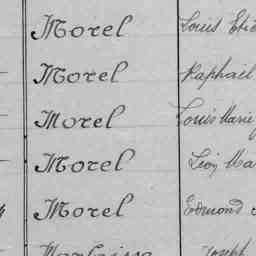 Morel Louis
Morel Raphail
Morel Louis Marie
Morel Léon Ma
Morel Edmond
Joseph